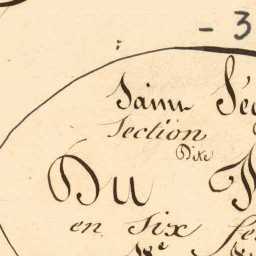 - 3
Saint Sé
Section
Dite
Du
en Six fe